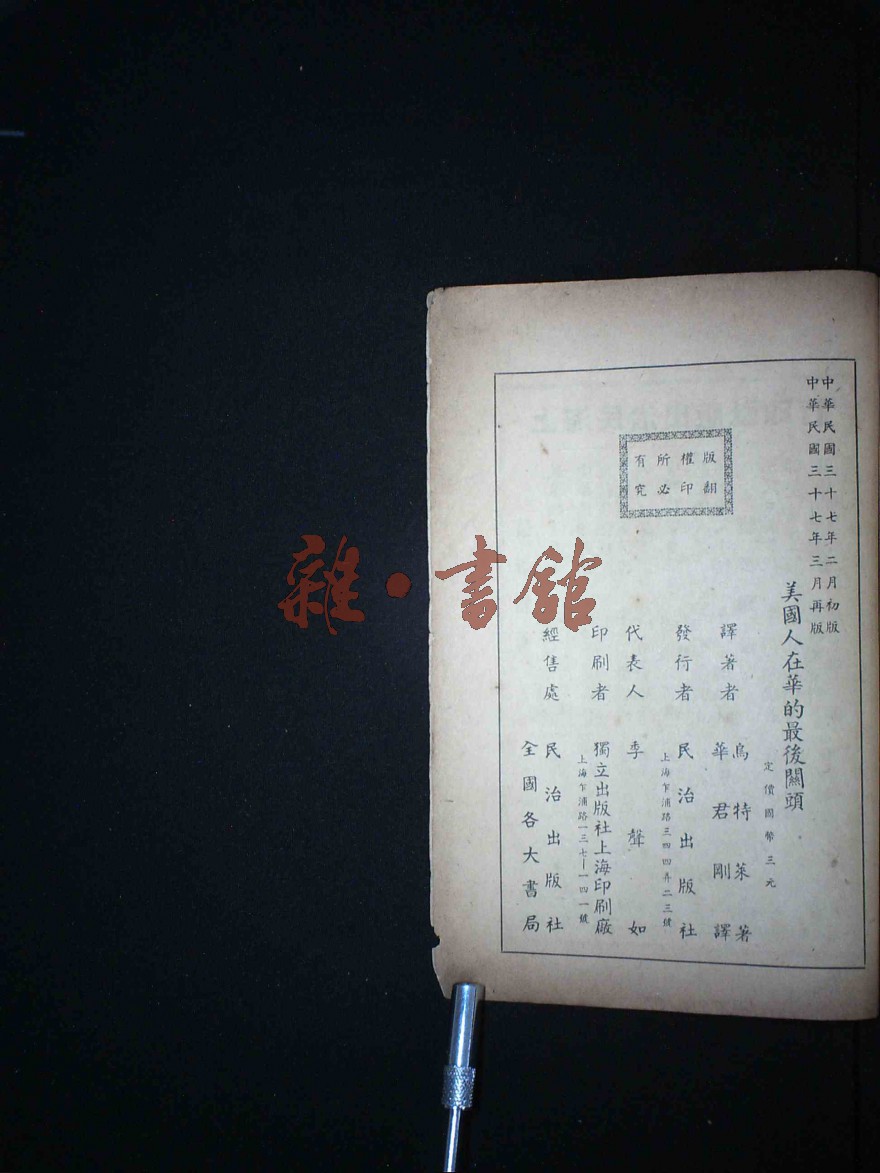 中華民國三十七年二月初版
中華民國三十七年三月再版
美國人在華的最後關頭
定價國幣三元
版權所有
翻印必究
譯著者
烏特萊著
華君剛譯
發行者
民治出版社
上海乍浦路三四四弄二三號
代表人
李聲如
印刷者
獨立出版社上海印刷廠
上海乍浦路一三七—一四一號
經售處
民治出版社
全國各大書局
雜·書館